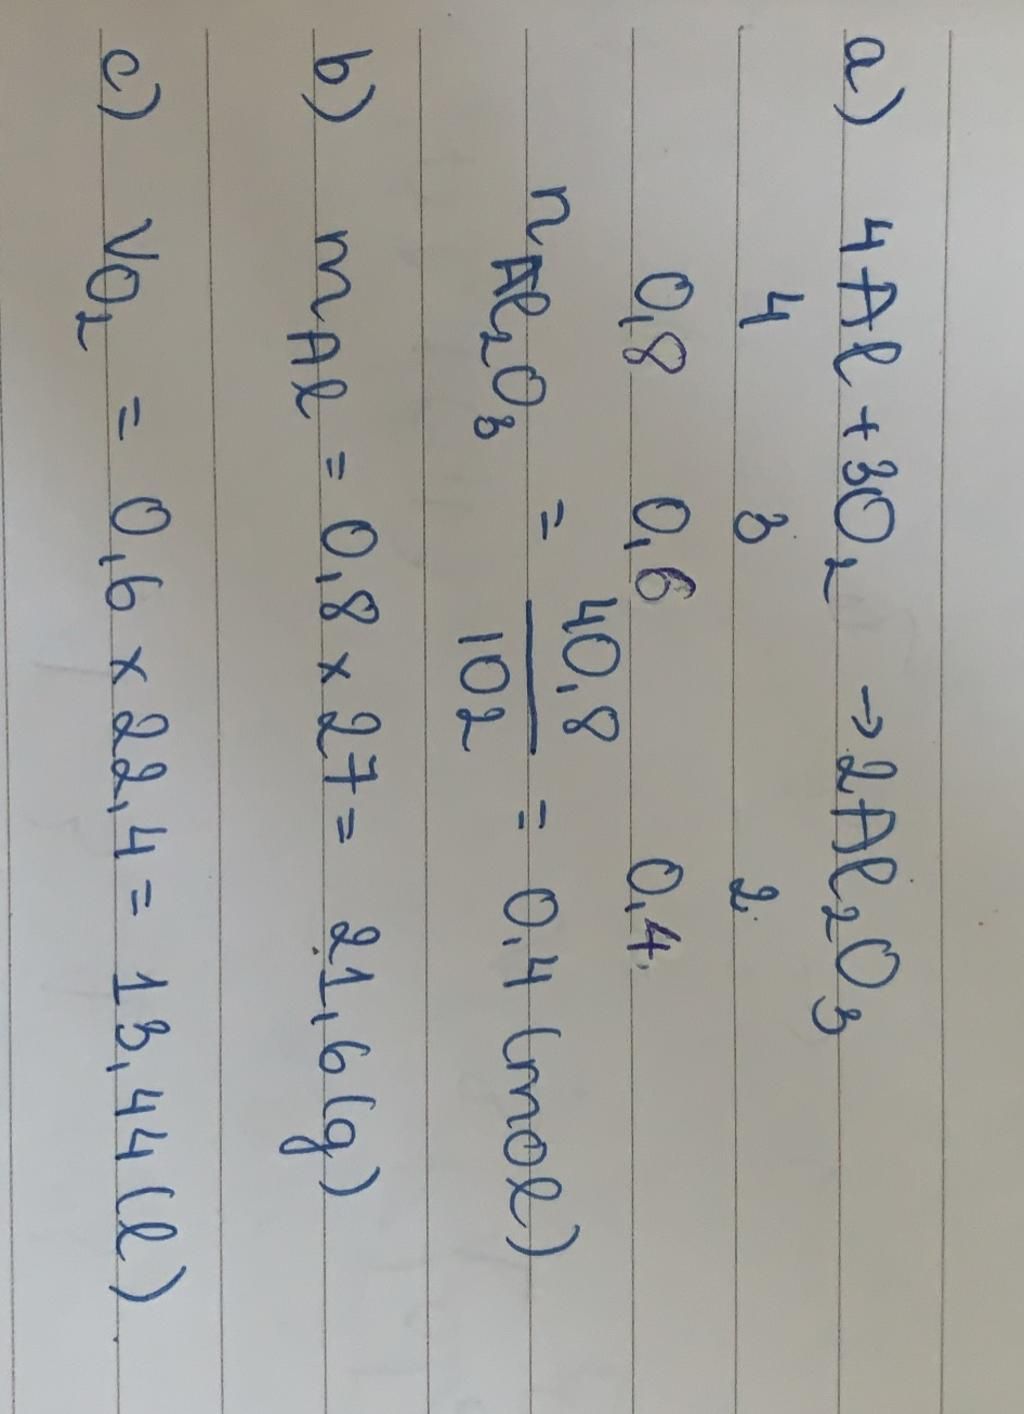 a) 4Al + 3O₂ → 2Al₂O₃
4 3 2
0,8 0,6 0,4
nAl₂O₃ = 40,8/102 = 0,4 (mol)
b) mAl = 0,8 × 27 = 21,6 (g)
c) VO₂ = 0,6 × 22,4 = 13,44 (l)